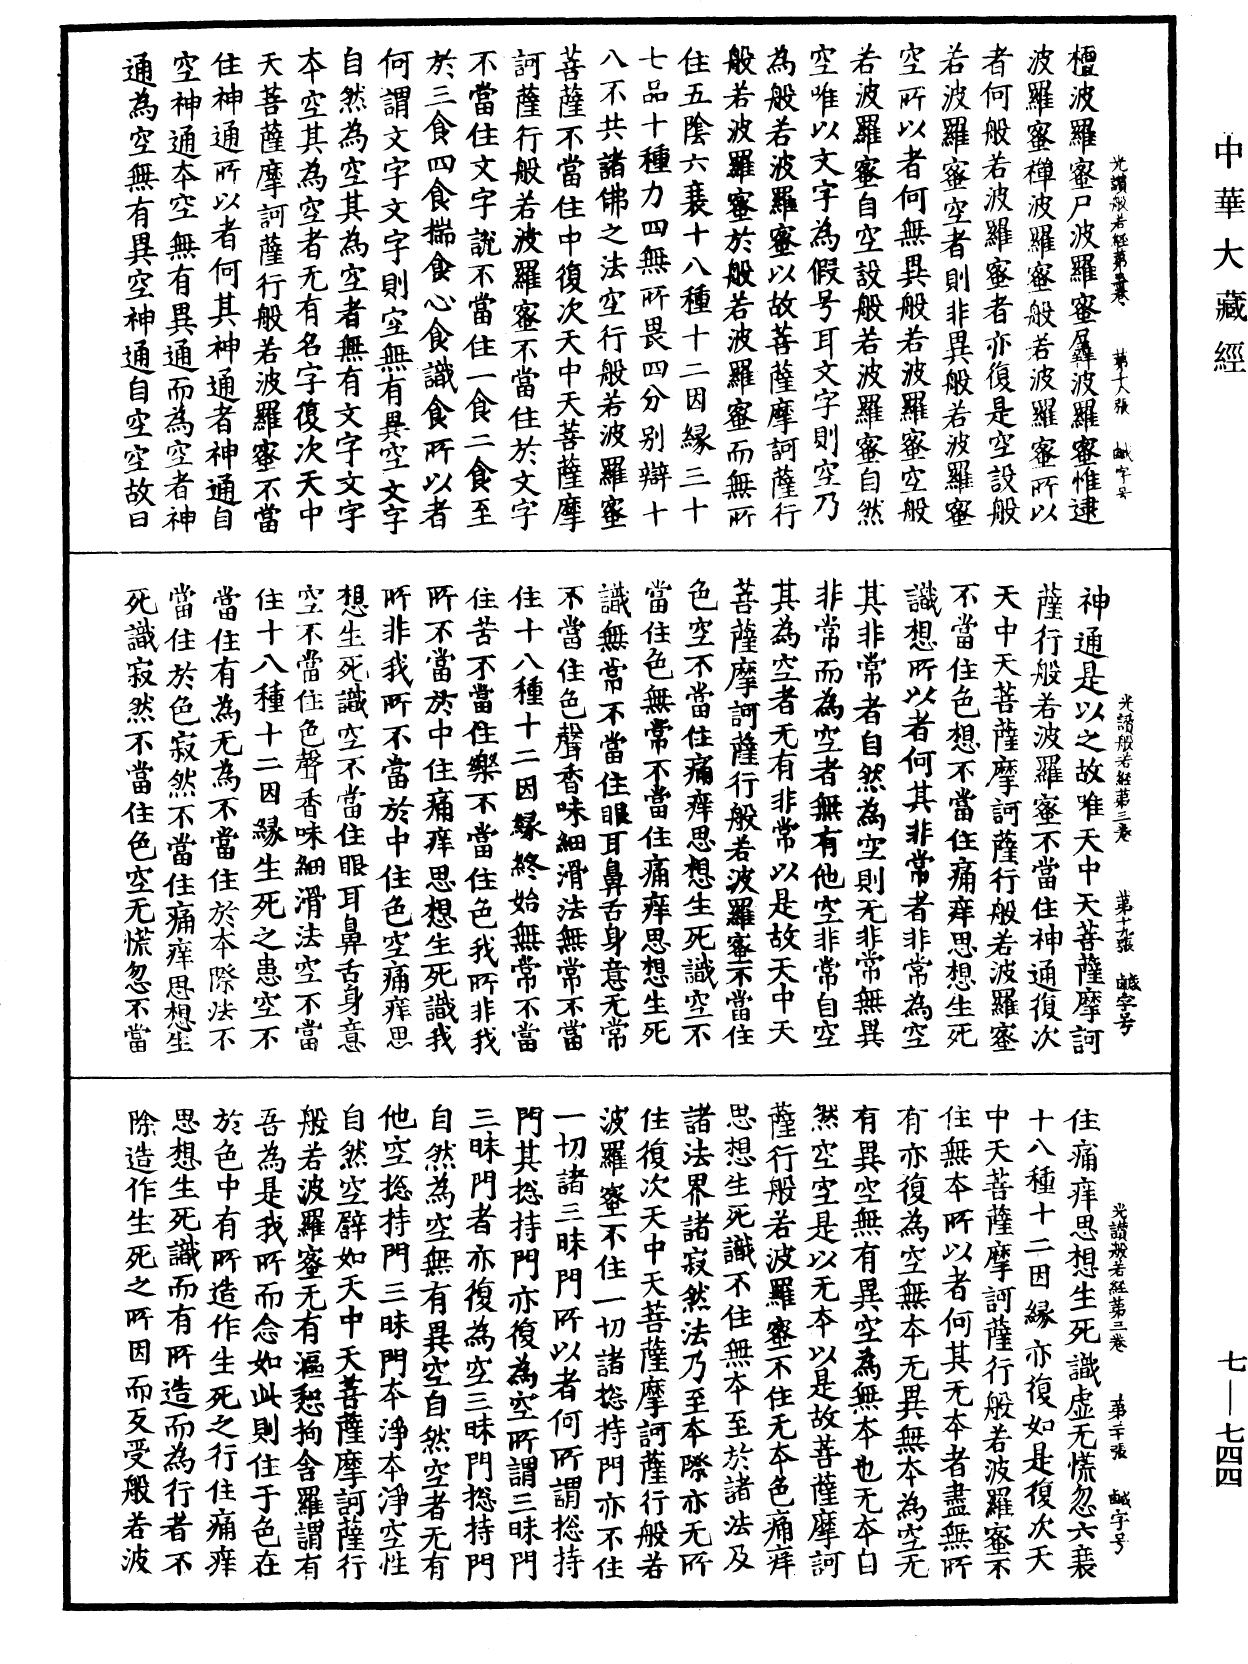 中華大藏經
七—七四四
光讚般若經第三卷 第十八張 鹹字号
檀波羅蜜尸波羅蜜羼波羅蜜惟逮
波羅蜜禪波羅蜜般若波羅蜜所以
者何般若波羅蜜者亦復是空設般
若波羅蜜空者則非異般若波羅蜜
空所以者何無異般若波羅蜜空般
若波羅蜜自空設般若波羅蜜自然
空唯以文字為假号耳文字則空乃
為般若波羅蜜以故菩薩摩訶薩行
般若波羅蜜於般若波羅蜜而無所
住五陰六衰十八種十二因緣三十
七品十種力四無所畏四分別辯十
八不共諸佛之法空行般若波羅蜜
菩薩不當住中復次天中天菩薩摩
訶薩行般若波羅蜜不當住於文字
不當住文字說不當住一食二食至
於三食四食揣食心食識食所以者
何謂文字文字則空無有異空文字
自然為空其為空者無有文字文字
本空其為空者无有名字復次天中
天菩薩摩訶薩行般若波羅蜜不當
住神通所以者何其神通者神通自
空神通本空無有異通而為空者神
通為空無有異空神通自空空故曰
光讚般若經第三卷 第十九張 鹹字号
神通是以之故唯天中天菩薩摩訶
薩行般若波羅蜜不當住神通復次
天中天菩薩摩訶薩行般若波羅蜜
不當住色想不當住痛痒思想生死
識想所以者何其非常者非常為空
其非常者自然為空則无非常無異
非常而為空者無有他空非常自空
其為空者无有非常以是故天中天
菩薩摩訶薩行般若波羅蜜不當住
色空不當住痛痒思想生死識空不
當住色無常不當住痛痒思想生死
識無常不當住眼耳鼻舌身意无常
不當住色聲香味細滑法無常不當
住十八種十二因緣終始無常不當
住苦不當住樂不當住色我所非我
所不當於中住痛痒思想生死識我
所非我所不當於中住色空痛痒思
想生死識空不當住眼耳鼻舌身意
空不當住色聲香味細滑法空不當
住十八種十二因緣生死之患空不
當住有為无為不當住於本際法不
當住於色寂然不當住痛痒思想生
死識寂然不當住色空无慌忽不當
光讚般若經第三卷 第二十張 鹹字号
住痛痒思想生死識虛无慌忽六衰
十八種十二因緣亦復如是復次天
中天菩薩摩訶薩行般若波羅蜜不
住無本所以者何其无本者盡無所
有亦復為空無本无異無本為空无
有異空無有異空為無本也无本自
然空空是以无本以是故菩薩摩訶
薩行般若波羅蜜不住无本色痛痒
思想生死識不住無本至於諸法及
諸法界諸寂然法乃至本際亦无所
住復次天中天菩薩摩訶薩行般若
波羅蜜不住一切諸捴持門亦不住
一切諸三昧門所以者何所謂捴持
門其捴持門亦復為空所謂三昧門
三昧門者亦復為空三昧門捴持門
自然為空無有異空自然空者无有
他空捴持門三昧門本淨本淨空性
自然空譬如天中天菩薩摩訶薩行
般若波羅蜜无有漚惒拘舍羅謂有
吾為是我所而念如此則住于色在
於色中有所造作生死之行住痛痒
思想生死識而有所造而為行者不
除造作生死之所因而反受般若波